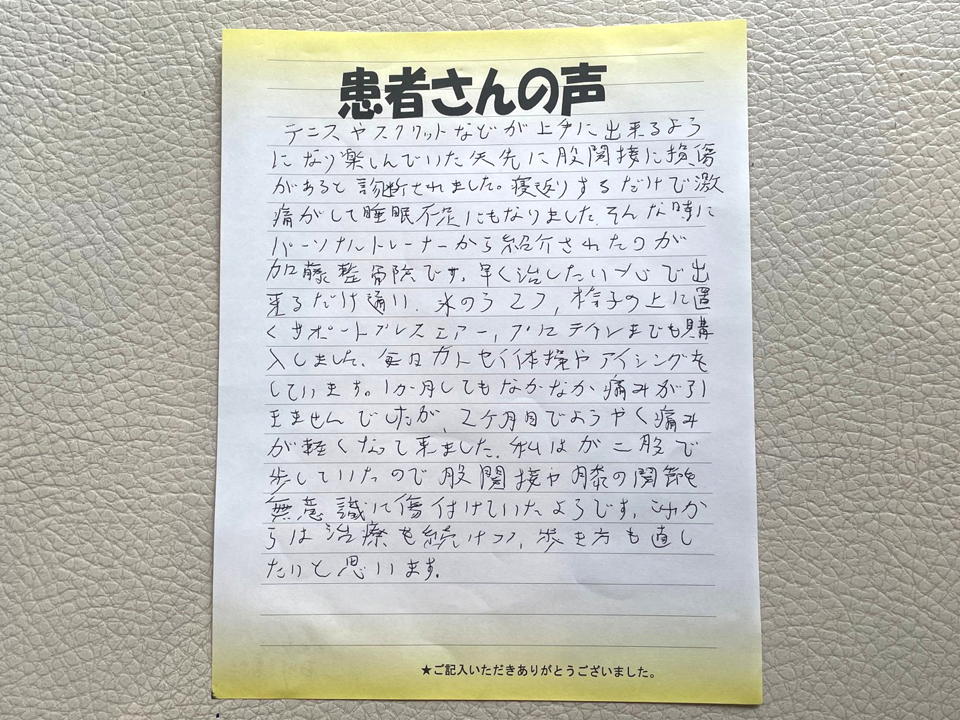 患者さんの声
テニスやスカッシュなどが上手に出来るよう
になり楽しんでいた矢先に股関接に損傷
があると診断されました。寝返りするだけで激
痛がして睡眠不足にもなりました。そんな時に
パーソナルトレーナーから紹介されたのが
加藤整骨院です。早く治したい一心で出
来るだけ通い、氷のう2つ、椅子の上に置
くサポートプレスエアー、プロテインまでも購
入しました。毎日カトセイ体操やアイシングを
しています。1か月してもなかなか痛みが引
きませんでしたが、2ケ月目でようやく痛み
が軽くなって来ました。私はがに股で
歩していたので股関接や膝の関節を
無意識に傷付けていたようです。これか
らは治療を続けつつ、歩き方も直し
たいと思います。
★ご記入いただきありがとうございました。